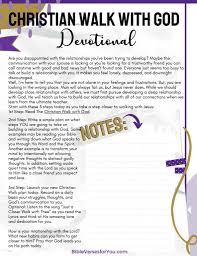 CHRISTIAN WALK WITH GOD
Devotional
Are you disappointed with the relationships you've been trying to develop? Maybe the
communication with your spouse is lacking or you're looking for a trustworthy friend you can
call anytime with good and bad news but haven't found one. Everyone seems too busy to
talk or build a relationship with you. It makes you feel lonely, depressed, and downright
discouraged.
Well, I'm here to tell you that you are not alone in your feelings and frustrations. But, you are
looking in the wrong place. Men will always fail us, but Jesus never does. While we should
develop close relationships with others, we must first pursue developing a deep relationship
with God, as this will reflect in our relationships with all of our connections when we
learn from the ultimate teacher.
Start with these 3 steps today as you take a step closer to where you need to be.
1st Step: Read The Christian Walk with God.
2nd Step: Write a simple plan on what
steps YOU are going to take on
building a relationship with God. Some
examples may be to respond by
writing down what God speaks to you
through His Word and the Spirit.
Another example is to redirect
negative thoughts to distract godly
thoughts. In addition, setting some
time aside without distractions to
speak with God.
3rd Step: Launch your new Christian
Walk plan today. Record on a daily
basis your struggles, thoughts, and
God's communication to you.
Optional: Listen to the song "Just a
Closer Walk with Thee" as you read the
lyrics and think of His amazing love
and dedication for you.
How is your relationship with the Lord?
What new habits can you form to get
closer to Him? Pray that God leads you
NOTES:
BibleVersesforYou.com